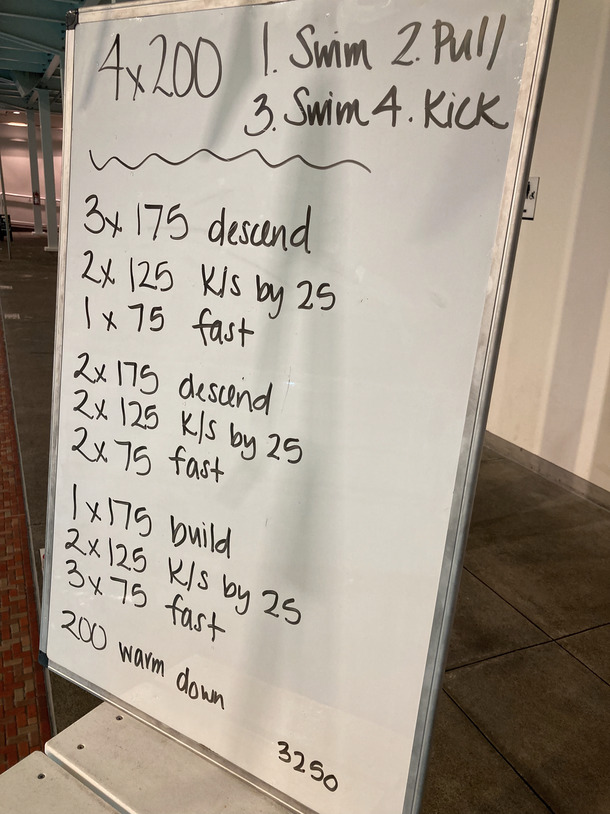 4x200 1. Swim 2. Pull
3. Swim 4. Kick
3x 175 descend
2x 125 K/s by 25
1 x 75 fast
2x 175 descend
2x 125 K/s by 25
2x 75 fast
1 x 175 build
2x 125 K/s by 25
3x 75 fast
200 warm down
3250